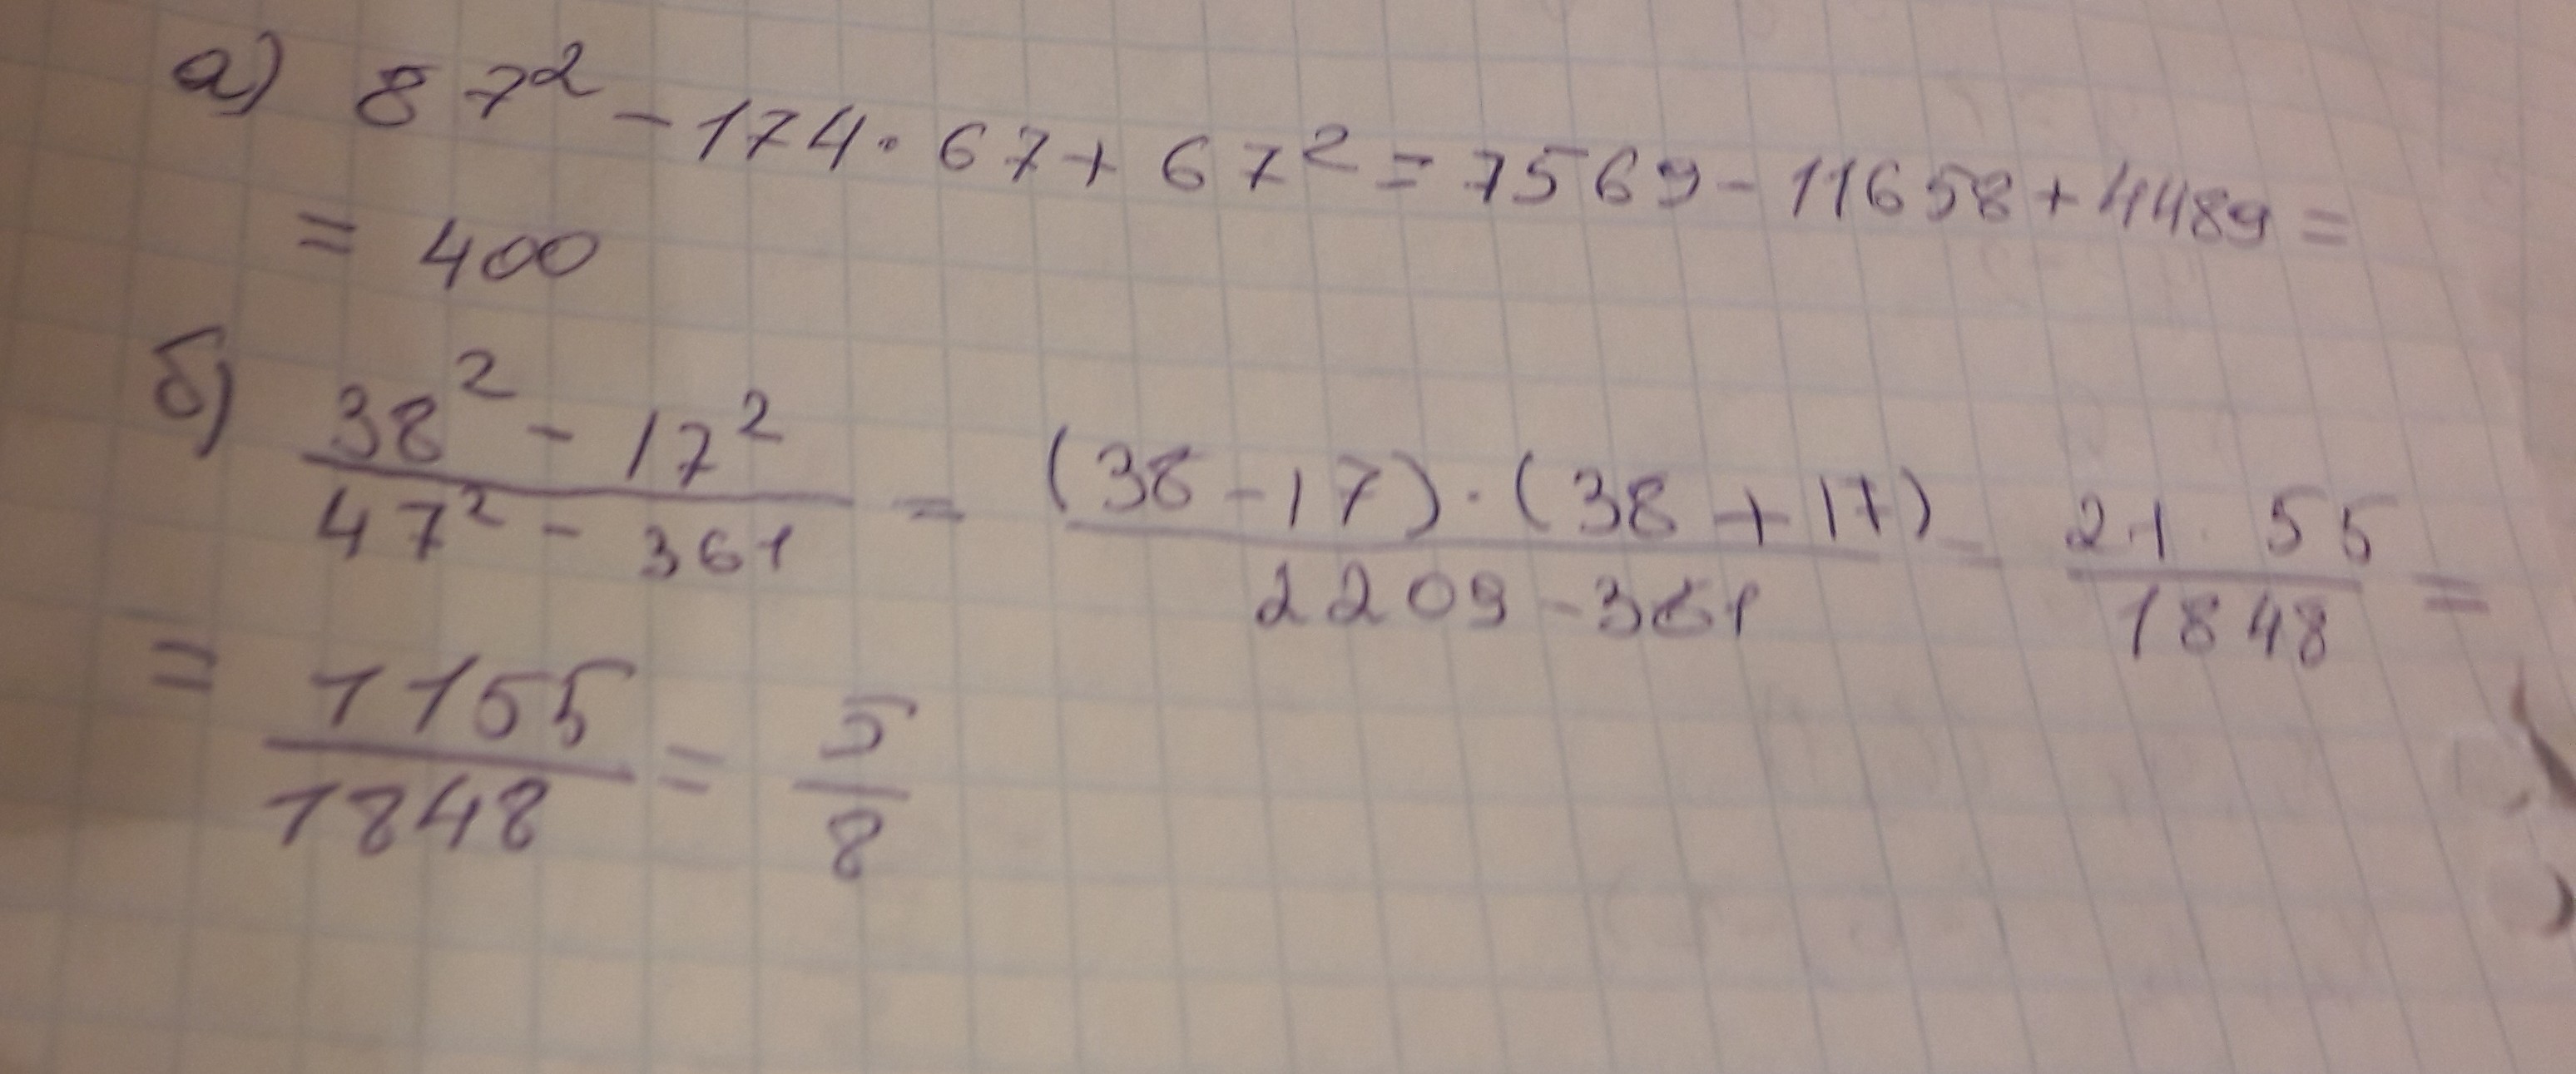 а) 87² - 174 · 67 + 67² = 7569 - 11658 + 4489 =
= 400
б) (38² - 17²)/(47² - 361) = ((38 - 17) · (38 + 17))/(2209 - 361) = (21 · 55)/1848 =
= 1155/1848 = 5/8